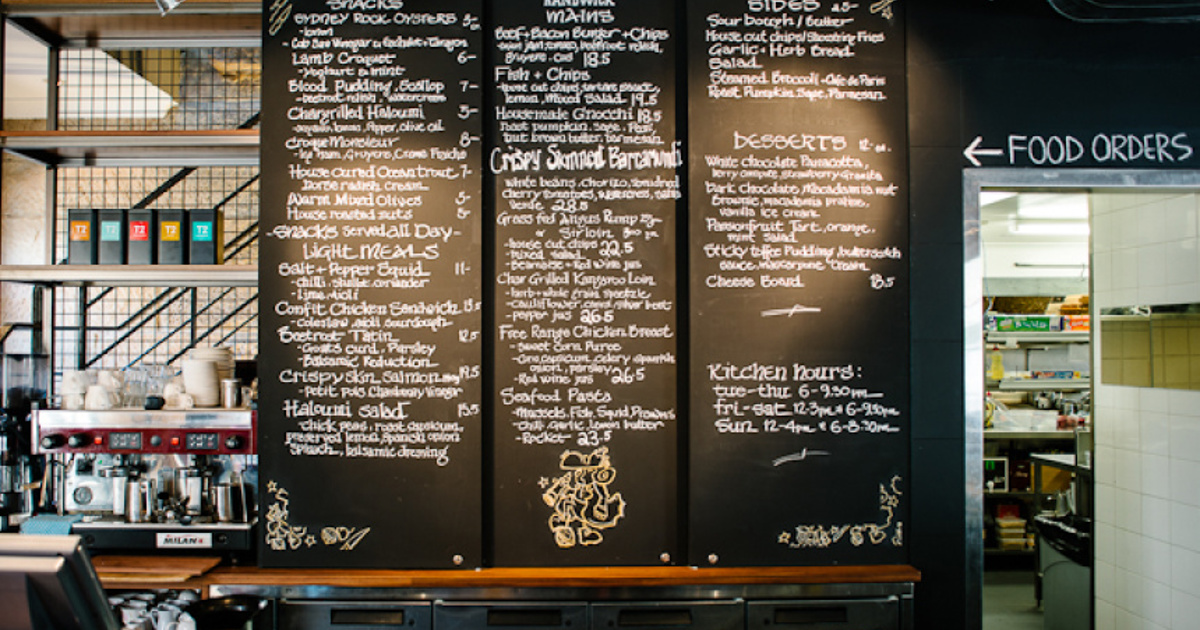 SNACKS
SYDNEY ROCK OYSTERS 3-
-lemon
Lamb Croquet 6-
-Yoghurt & mint
Blood Pudding, Scallop 7-
-beetroot relish, watercress
Chargrilled Haloumi 5-
lemon, Pepper, olive oil
croque Monsieur 8-
Ham, Gruyere, Creme Fraiche
House cured Ocean trout 7-
horse radish cream
Warm Mixed Olives 5-
House roasted nuts 5-
-Snacks served all Day-
LIGHT MEALS
Salt + Pepper Squid 11-
-chilli, shallot, coriander
-Lime aioli
Confit Chicken Sandwich 13.5
-Coleslaw, aioli, sourdough
Beetroot Tatin 12.5
-Goats curd, Parsley
-Balsamic Reduction
Crispy Skin Salmon 19.5
-Petit Pois, Chardonnay Vinegar
Haloumi salad 15.5
chick peas, roast capsicum,
preserved lemon, spanish onion
spinach, balsamic dressing
MAINS
Beef+Bacon Burger +Chips
beetroot relish,
gruyere, cos 18.5
Fish + Chips
-house cut chips, tartare sauce,
lemon, Mixed Salad 19.5
Housemade Gnocchi 18.5
roast pumpkin, sage, Peas,
nut brown butter, parmesan
Crispy Skinned Barramundi
white beans, chorizo, semi dried
cherry tomatoes, watercress, salsa
verde 28.5
Grass fed Angus Rump
or Sirloin
-house cut chips 22.5
-mixed salad
-bearnaise + Red wine jus
Char Grilled Kangaroo Loin
-herb+whole grain spaetzle
-cauliflower, silver beet
-pepper jus 26.5
Free Range Chicken Breast
-Sweet Corn Puree
-capsicum, celery, spanish
onion, parsley
-Red wine jus 26.5
Seafood Pasta
-Mussels, Fish, Squid, Prawns
-chilli, Garlic, Lemon butter
-Rocket 23.5
SIDES
Sour Dough / Butter
House cut chips/Shoestring Fries
Garlic + Herb Bread
Salad
Steamed Broccoli - Cafe de Paris
Roast Pumpkin, Sage, Parmesan
DESSERTS 12-
White chocolate Pannacotta,
berry compote, strawberry Granita
Dark Chocolate, Macadamia nut
Brownie, macadamia praline,
vanilla ice cream
Passionfruit Tart, orange,
mint salad
Sticky toffee Pudding, butterscotch
sauce, mascarpone cream
Cheese Board 18.5
Kitchen hours:
tue-thu 6-9.30pm
fri-sat 12-3pm & 6-9.30pm
Sun 12-4pm & 6-8.30pm
← FOOD ORDERS
T2
T2
T2
T2
T2
MILANO